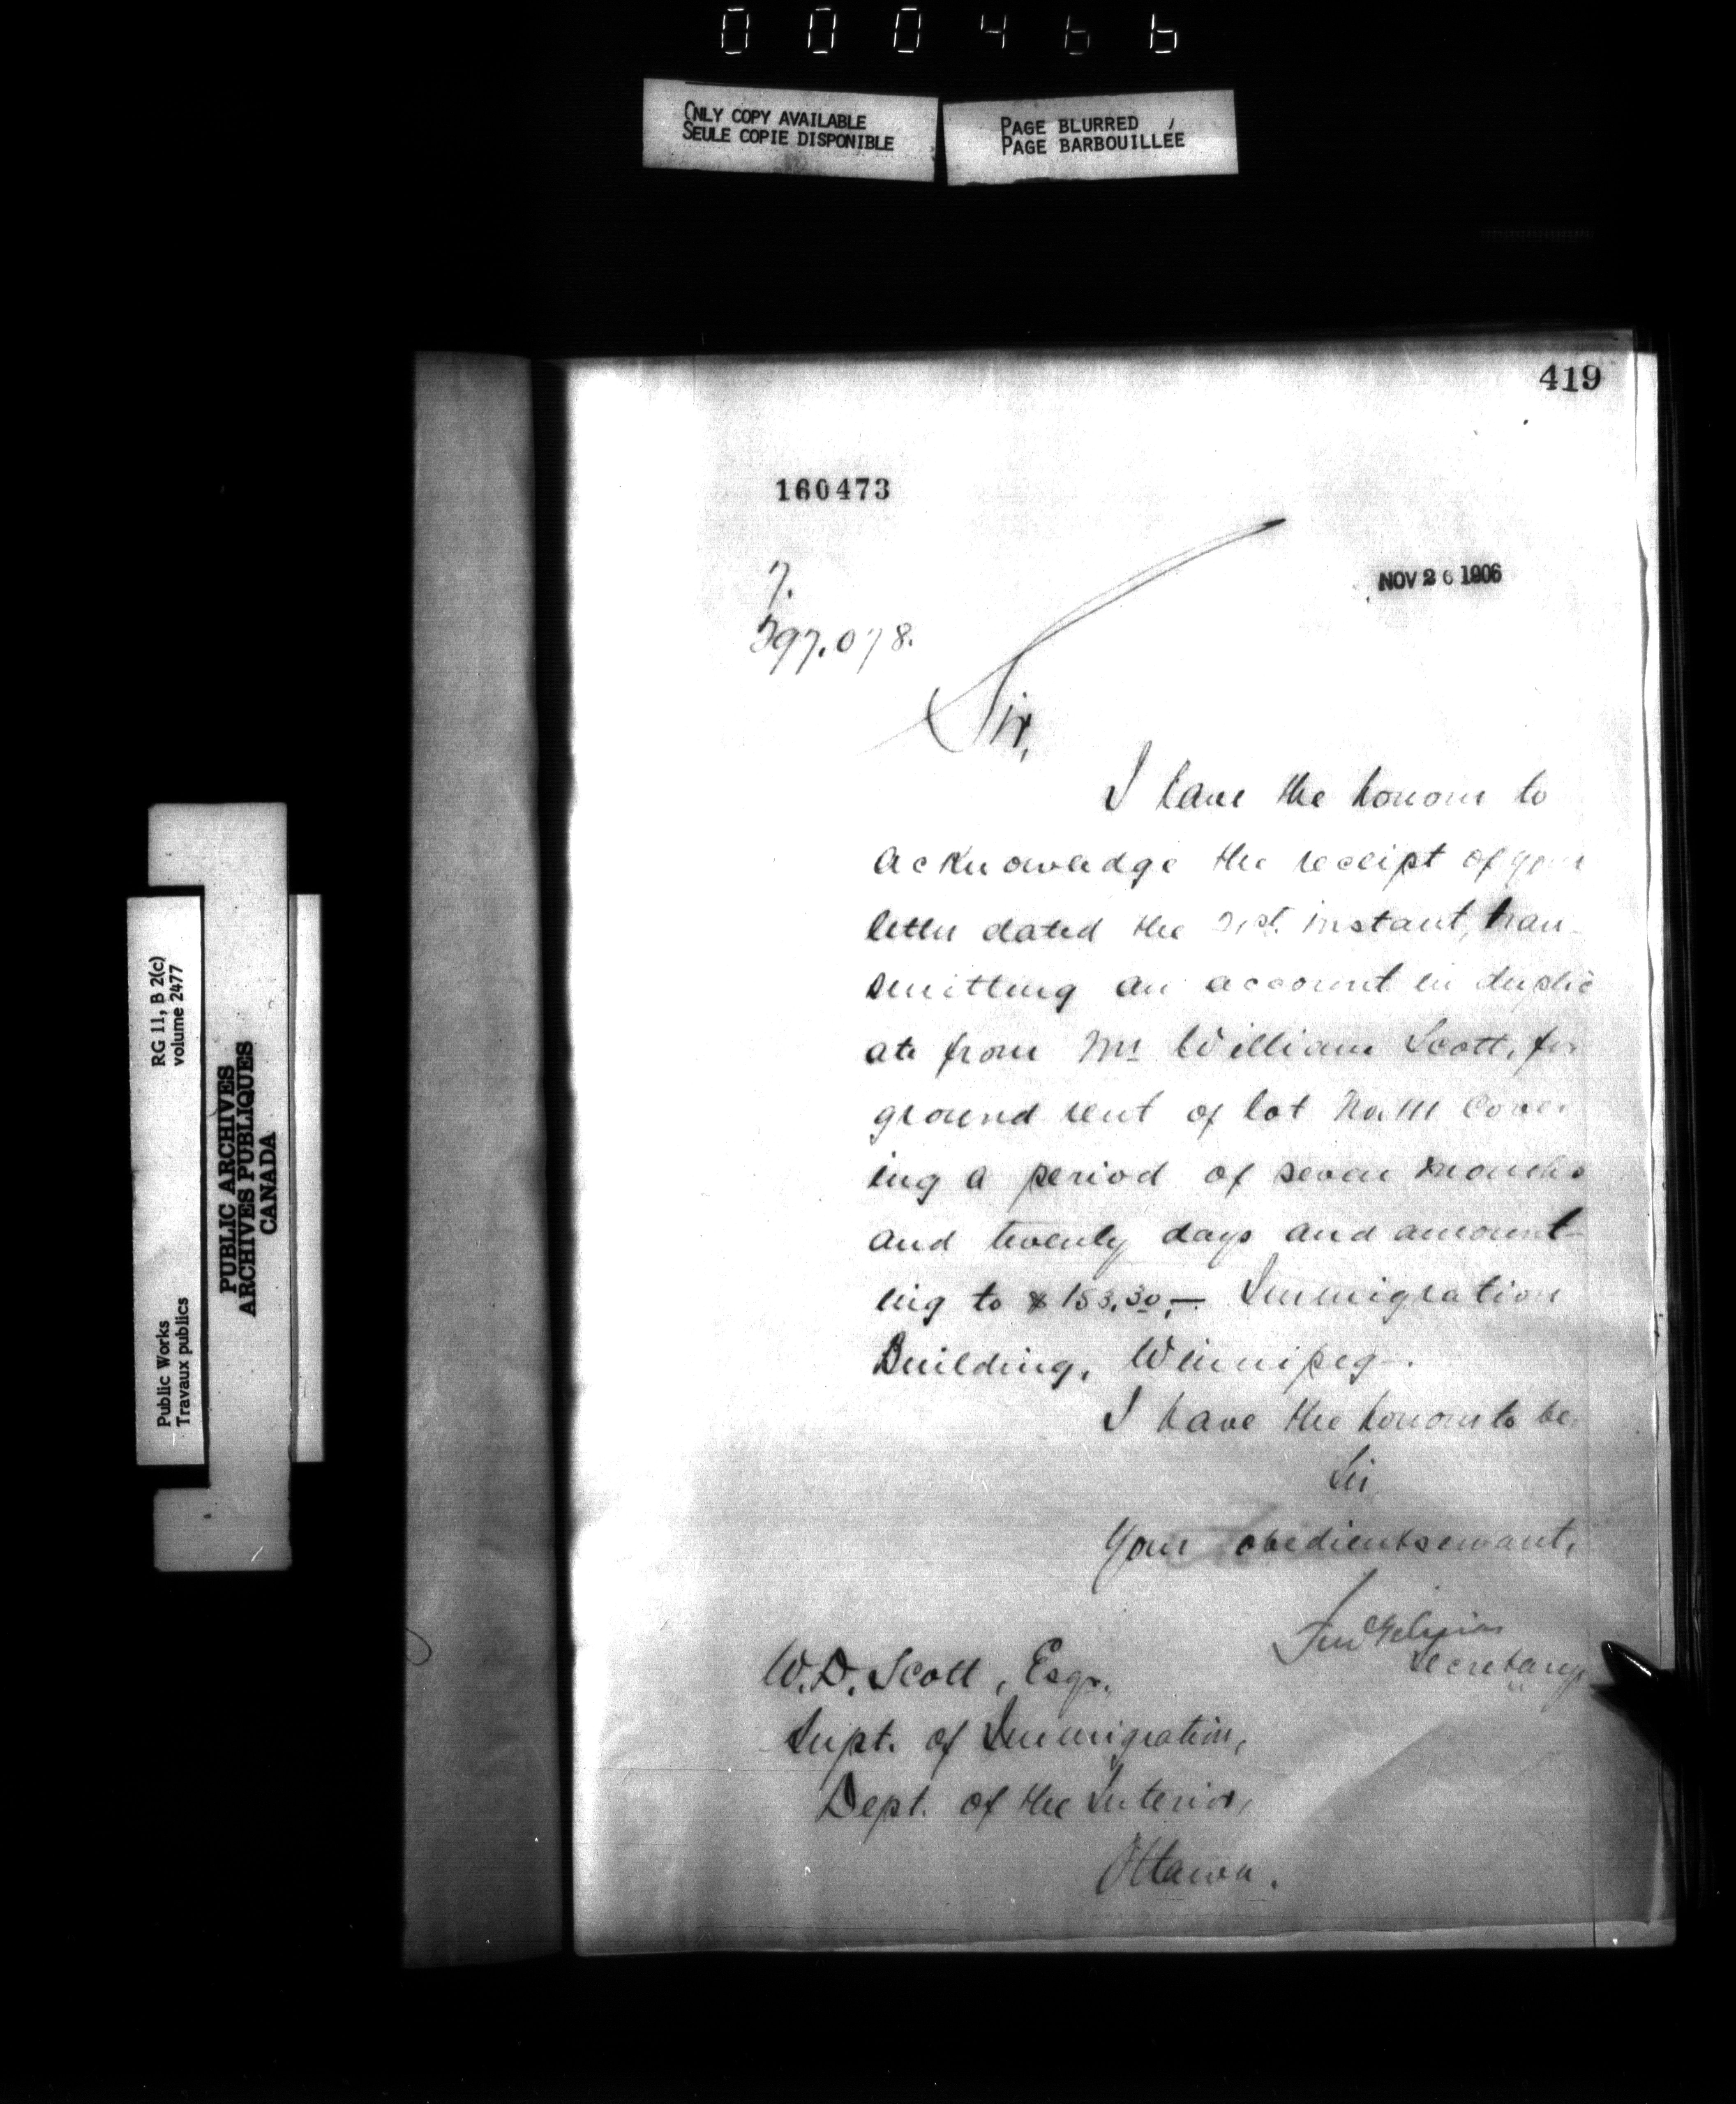 000466
ONLY COPY AVAILABLE
SEULE COPIE DISPONIBLE
PAGE BLURRED
PAGE BARBOUILLÉE
419
160473
NOV 26 1906
7.
397.078.
Sir,
I have the honour to
acknowledge the receipt of your
letter dated the 21st. instant, tran-
smitting an account in duplic
ate from Mr William Scott, for
ground rent of lot No. 111 Cover
ing a period of seven months
and twenty days and amount-
ing to $153.30,— Immigration
Building, Winnipeg—.
I have the honour to be,
Sir
Your obedient servant,
Secretary
W.D. Scott, Esqr.
Supt. of Immigration,
Dept. of the Interior,
Ottawa.
RG 11, B 2(c)
volume 2477
Public Works
Travaux publics
PUBLIC ARCHIVES
ARCHIVES PUBLIQUES
CANADA